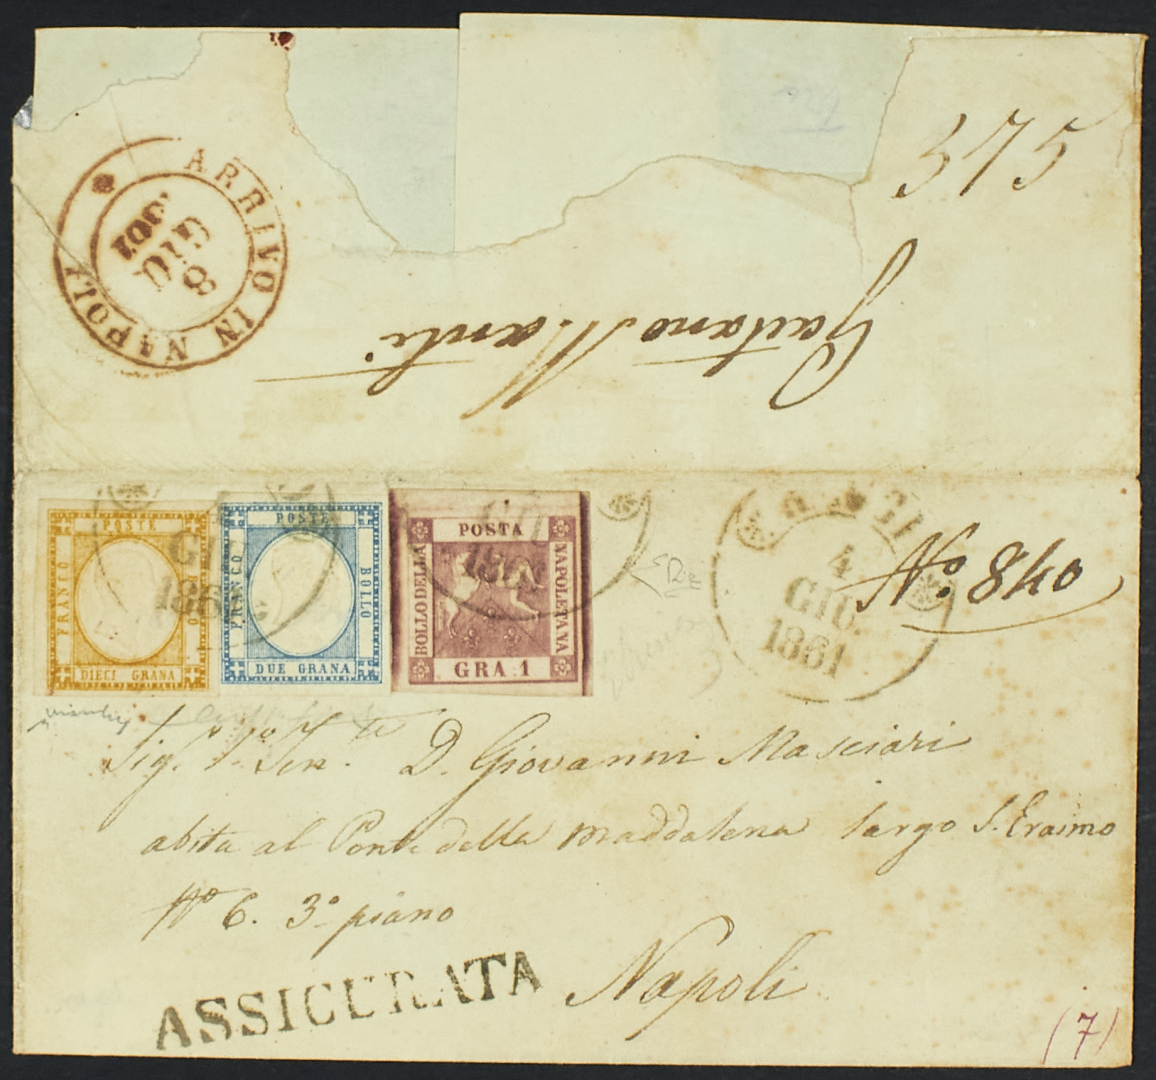 575
Gaetano
ARRIVO IN NAPOLI
8
GIU
POSTE
FRANCO
BOLLO
DIECI GRANA
POSTE
FRANCO
BOLLO
DUE GRANA
POSTA
BOLLO DELLA
NAPOLETANA
GRA 1
GIU
1861
4
GIU
1861
No. 840
Sig. D. Giovanni Masciari
abita al Ponte della Maddalena largo S. Erasmo
No 6. 3o piano
Napoli
ASSICURATA
(7)